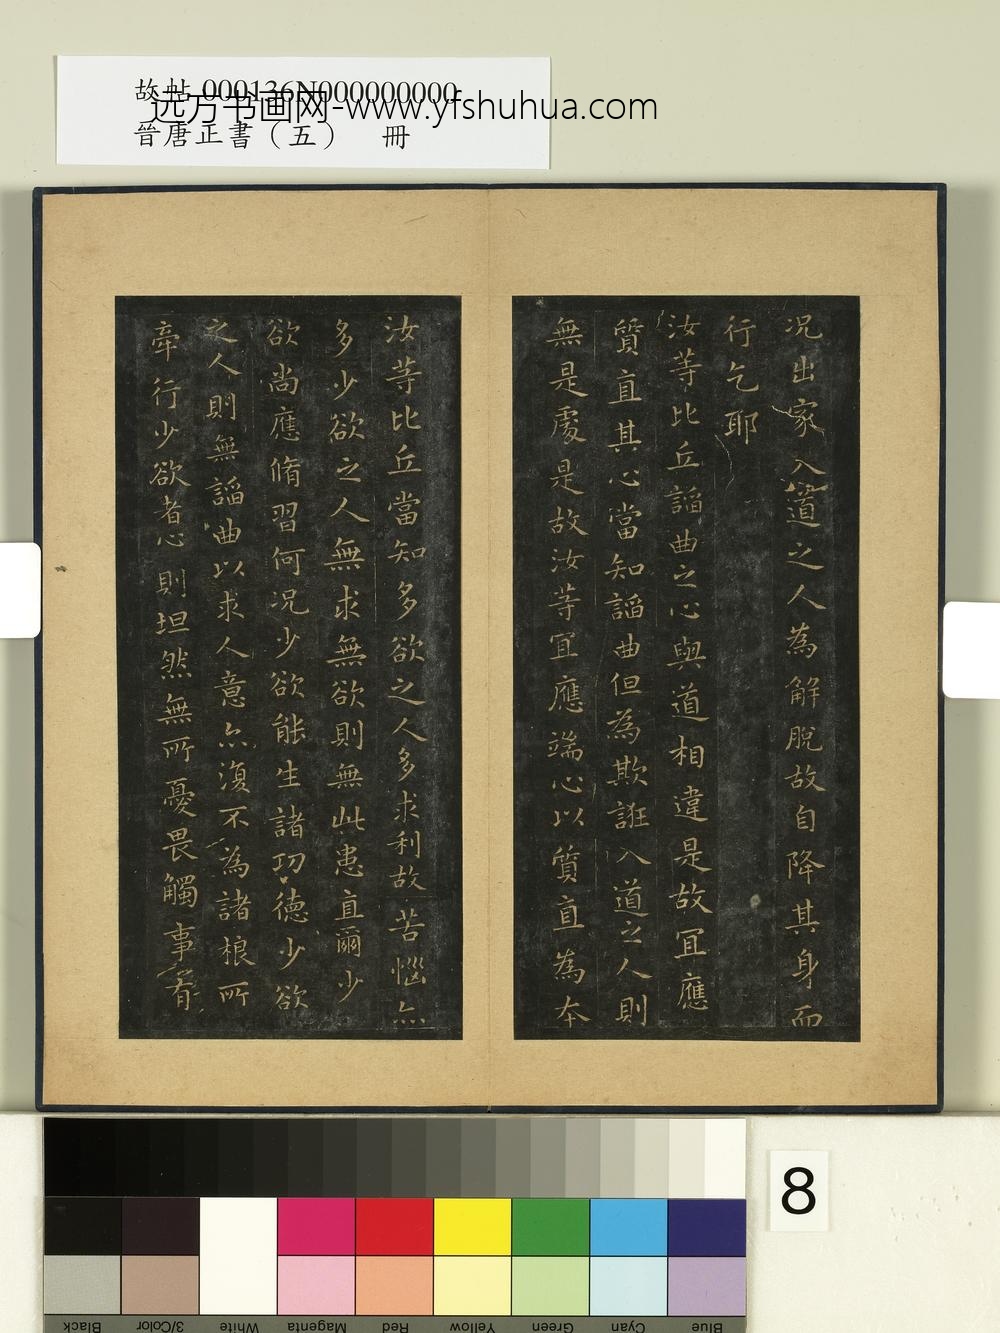 故帖 000136N000000000
远方书画网-www.yfshuhua.com
晉唐正書（五） 冊
况出家入道之人為解脫故自降其身而
行乞耶
汝等比丘謟曲之心與道相違是故冝應
質直其心當知謟曲但為欺誑入道之人則
無是處是故汝等冝應端心以質直為本
汝等比丘當知多欲之人多求利故苦惱亦
多少欲之人無求無欲則無此患直爾少
欲尚應脩習何况少欲能生諸功德少欲
之人則無謟曲以求人意亦復不為諸根所
牽行少欲者心則坦然無所憂畏觸事有
8
Black
3/Color
White
Magenta
Red
Yellow
Green
Cyan
Blue